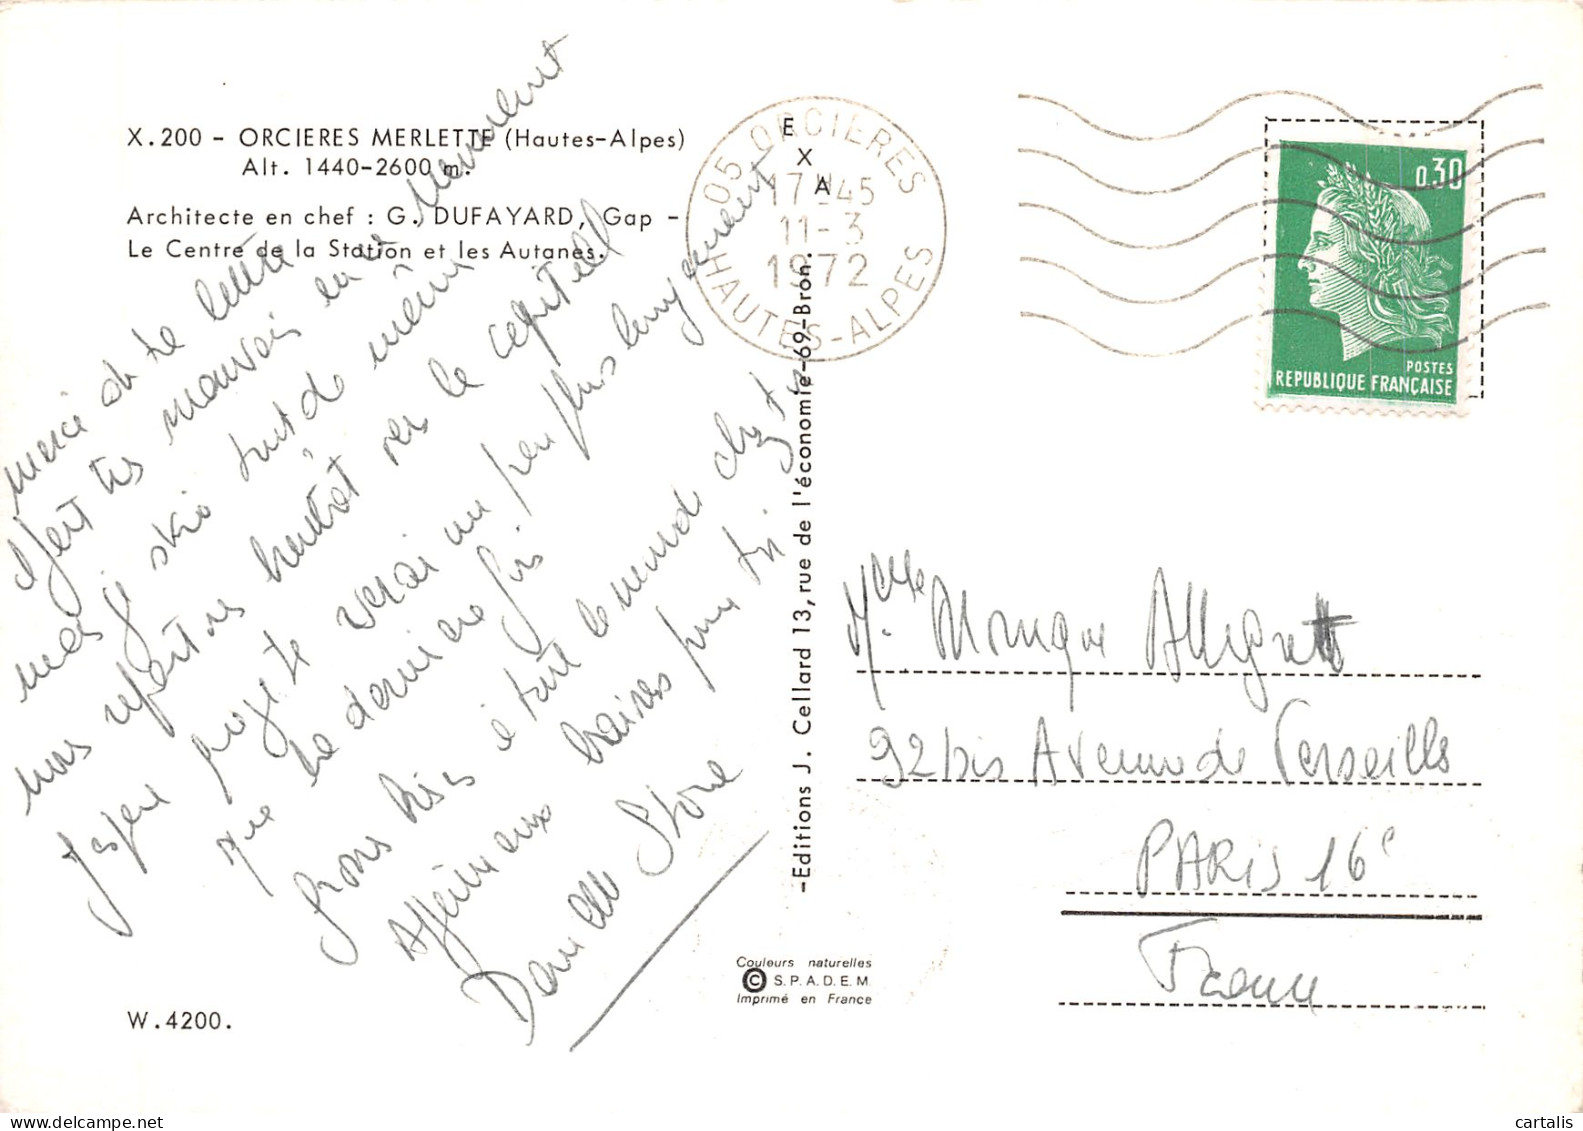 X.200 - ORCIERES MERLETTE (Hautes-Alpes)
Alt. 1440-2600 m.
Architecte en chef : G. DUFAYARD, Gap -
Le Centre de la Station et les Autanes.
merci de ta lettre
il fait très mauvais en ce moment
mais je skie tout de même
nous repartons bientôt vers la capitale
J'espère que je te verrai un peu plus longuement
que la dernière fois.
Gros bises à tout le monde chez toi
Affectueux baisers pour toi
Danielle Stone
W.4200.
EXA
-Editions J. Cellard 13, rue de l'économie-69-Bron.
Couleurs naturelles
© S.P.A.D.E.M.
Imprimé en France
05 ORCIERES
17H45
11-3
1972
HAUTES-ALPES
0,30
POSTES
REPUBLIQUE FRANÇAISE
Melle Monique
92 bis Avenue de Versailles
PARIS 16e
France
cartalis